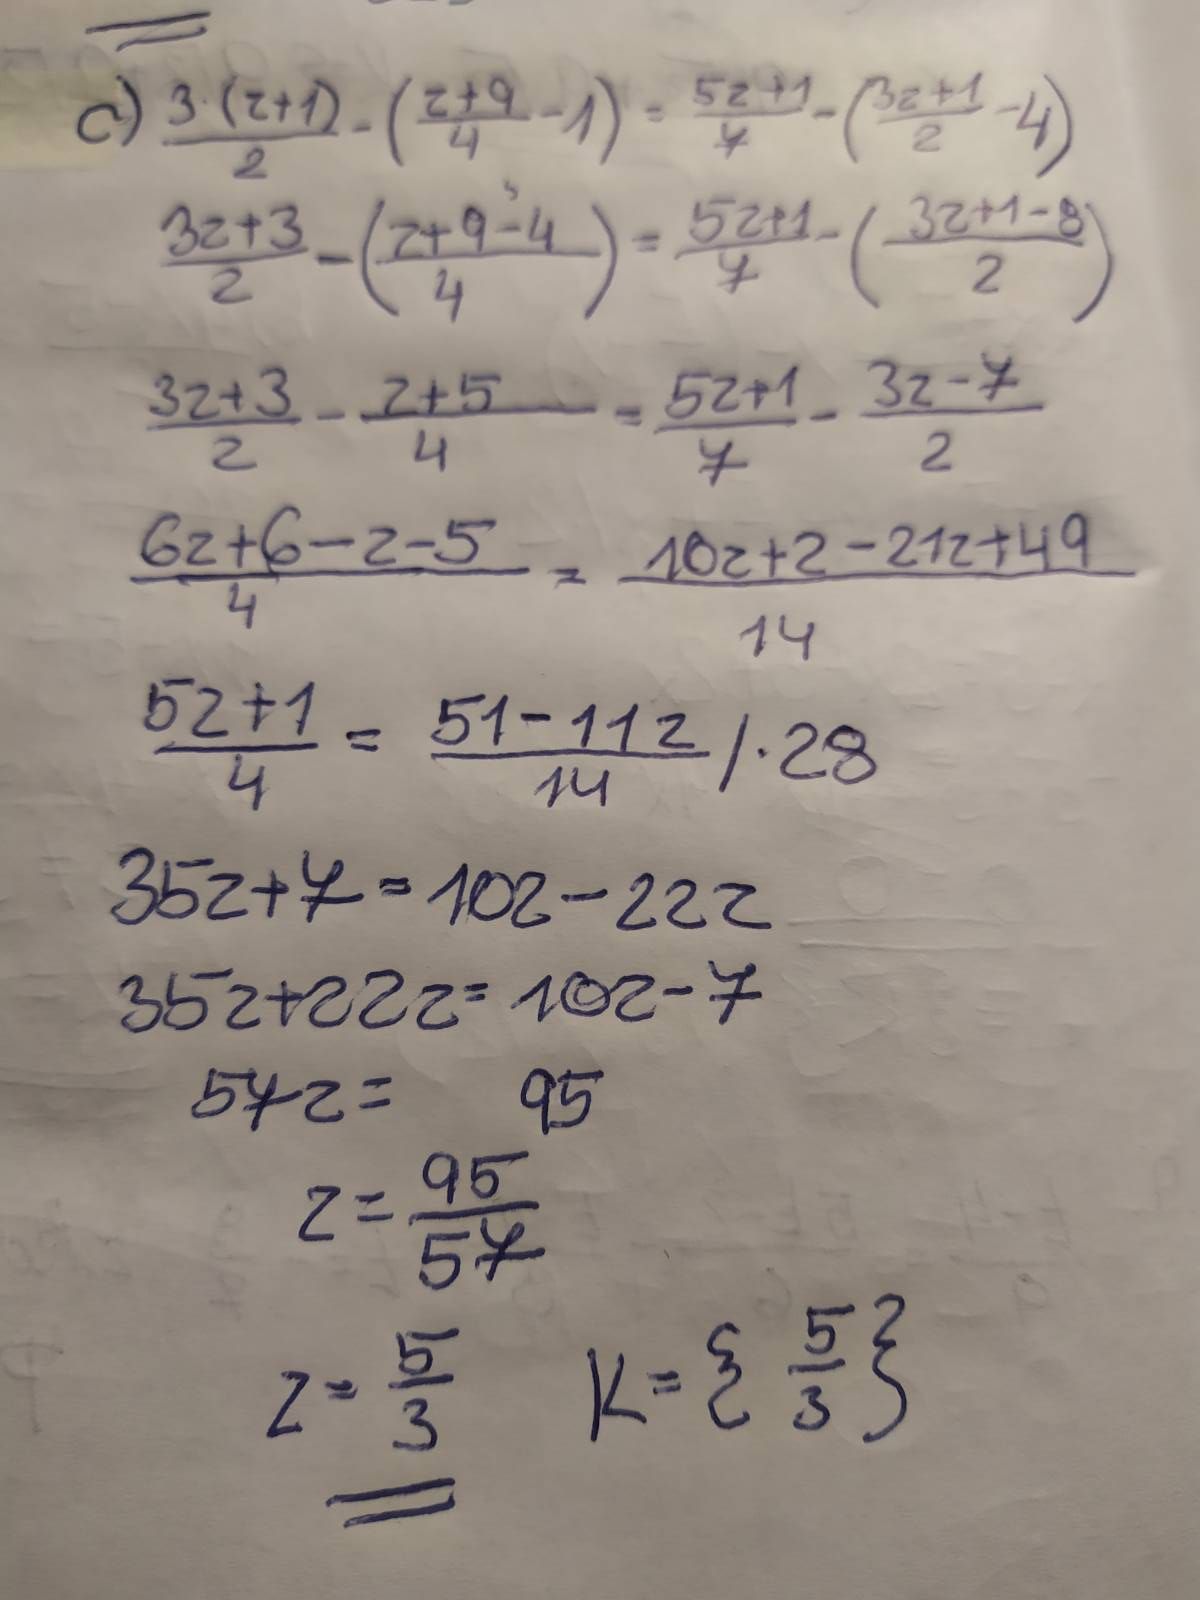 c) 3·(z+1)/2 - (z+9/4 - 1) = 5z+1/7 - (3z+1/2 - 4)
3z+3/2 - (z+9-4/4) = 5z+1/7 - (3z+1-8/2)
3z+3/2 - z+5/4 = 5z+1/7 - 3z-7/2
6z+6-z-5/4 = 10z+2-21z+49/14
5z+1/4 = 51-11z/14 /·28
35z+7=102-22z
35z+22z=102-7
57z= 95
z=95/57
z=5/3 K={5/3}